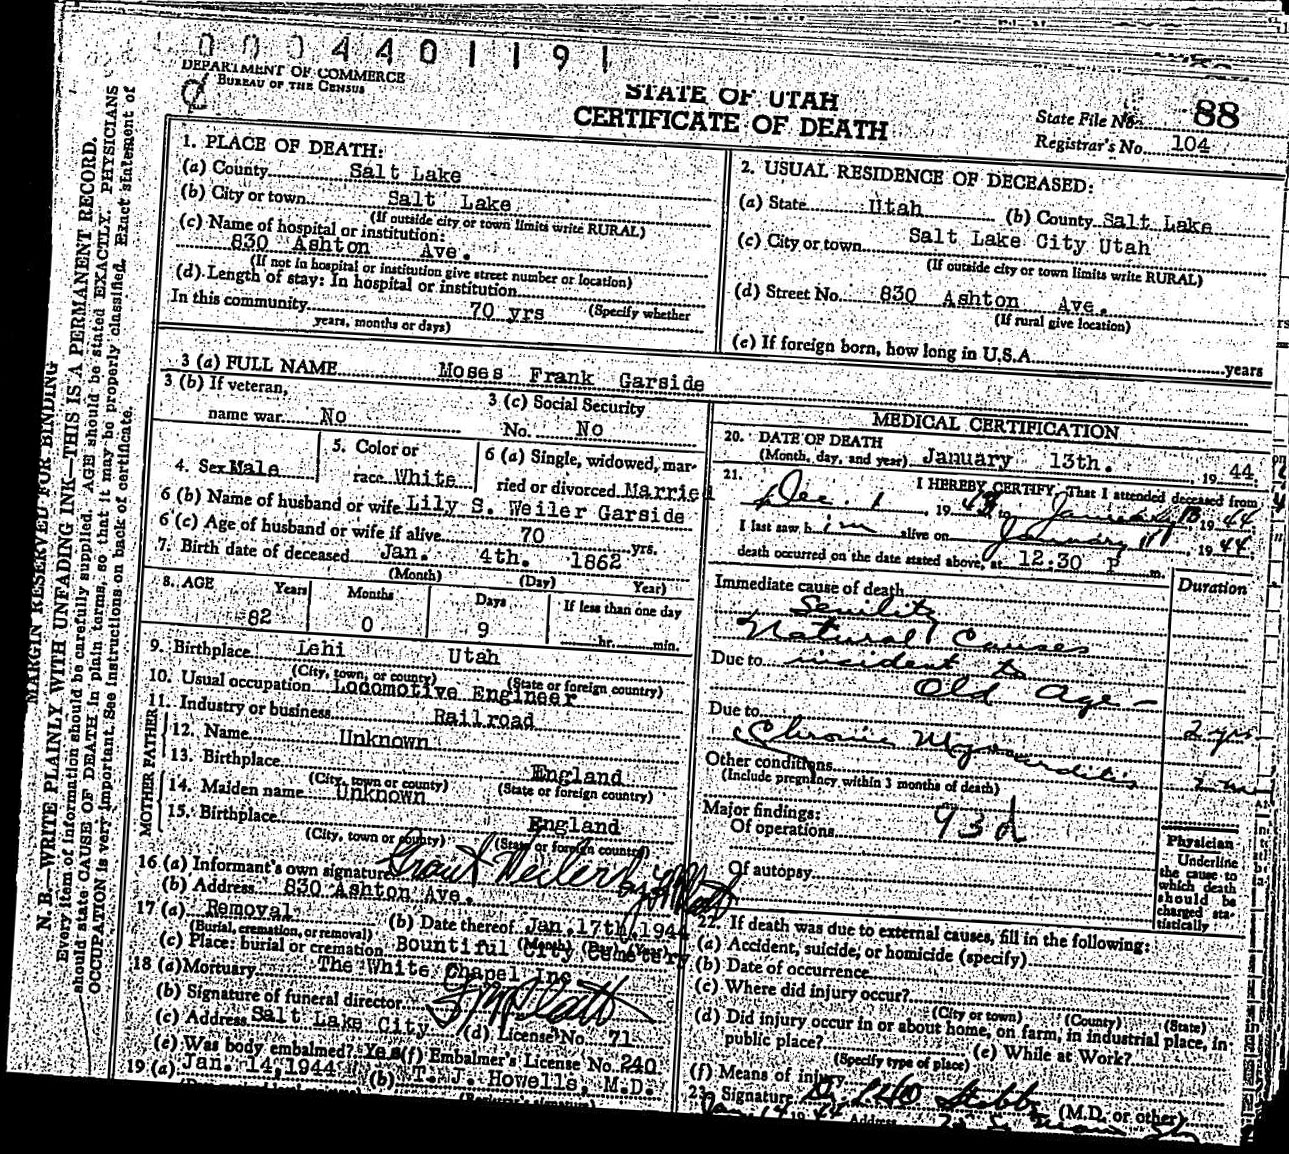 0004401191
DEPARTMENT OF COMMERCE
BUREAU OF THE CENSUS
STATE OF UTAH
CERTIFICATE OF DEATH
State File No. 88
Registrar's No. 104
MARGIN RESERVED FOR BINDING
N. B.—WRITE PLAINLY WITH UNFADING INK—THIS IS A PERMANENT RECORD.
Every item of information should be carefully supplied. AGE should be stated EXACTLY. PHYSICIANS
should state CAUSE OF DEATH in plain terms, so that it may be properly classified. Exact statement of
OCCUPATION is very important. See instructions on back of certificate.
1. PLACE OF DEATH:
(a) County Salt Lake
(b) City or town Salt Lake
(If outside city or town limits write RURAL)
(c) Name of hospital or institution:
830 Ashton Ave.
(If not in hospital or institution give street number or location)
(d) Length of stay: In hospital or institution
In this community 70 yrs (Specify whether
years, months or days)
2. USUAL RESIDENCE OF DECEASED:
(a) State Utah (b) County Salt Lake
(c) City or town Salt Lake City Utah
(If outside city or town limits write RURAL)
(d) Street No. 830 Ashton Ave.
(If rural give location)
(e) If foreign born, how long in U.S.A. years
3 (a) FULL NAME Moses Frank Garside
3 (b) If veteran,
name war No
3 (c) Social Security
No. No
4. Sex Male
5. Color or
race White
6 (a) Single, widowed, mar-
ried or divorced Married
6 (b) Name of husband or wife Lily S. Weiler Garside
6 (c) Age of husband or wife if alive 70 yrs.
7. Birth date of deceased Jan. 4th. 1862
(Month) (Day) Year)
8. AGE Years Months Days If less than one day
82 0 9 hr. min.
9. Birthplace Lehi Utah
(City, town, or county) (State or foreign country)
10. Usual occupation Locomotive Engineer
11. Industry or business Railroad
FATHER
12. Name Unknown
13. Birthplace England
(City, town or county) (State or foreign country)
MOTHER
14. Maiden name Unknown
15. Birthplace England
(City, town or county) (State or foreign country)
16 (a) Informant's own signature
(b) Address 830 Ashton Ave.
17 (a) Removal (b) Date thereof Jan. 17th, 1944
(Burial, cremation, or removal) (Month) (Day) (Year)
(c) Place: burial or cremation Bountiful City Cemetery
18 (a) Mortuary The White Chapel Inc
(b) Signature of funeral director
(c) Address Salt Lake City (d) License No. 71
(e) Was body embalmed? Yes (f) Embalmer's License No. 240
19 (a) Jan. 14, 1944 (b) T. J. Howells, M.D.
MEDICAL CERTIFICATION
20. DATE OF DEATH
(Month, day, and year) January 13th. 19 44
21. I HEREBY CERTIFY, That I attended deceased from
Dec. 1, 19 to January 13 19 44
I last saw him alive on January 19 44
death occurred on the date stated above, at 12:30 P m.
Immediate cause of death Duration
Senility
Natural Causes
Due to incident to
Old age —
Due to 2 yrs
Chronic Myocarditis
Other conditions
(Include pregnancy within 3 months of death)
Major findings:
Of operations 93d
Of autopsy
Physician
Underline
the cause to
which death
should be
charged sta-
tistically
22. If death was due to external causes, fill in the following:
(a) Accident, suicide, or homicide (specify)
(b) Date of occurrence
(c) Where did injury occur?
(City or town) (County) (State)
(d) Did injury occur in or about home, on farm, in industrial place, in
public place? (e) While at Work?
(Specify type of place)
(f) Means of injury
23. Signature (M.D. or other)
Address